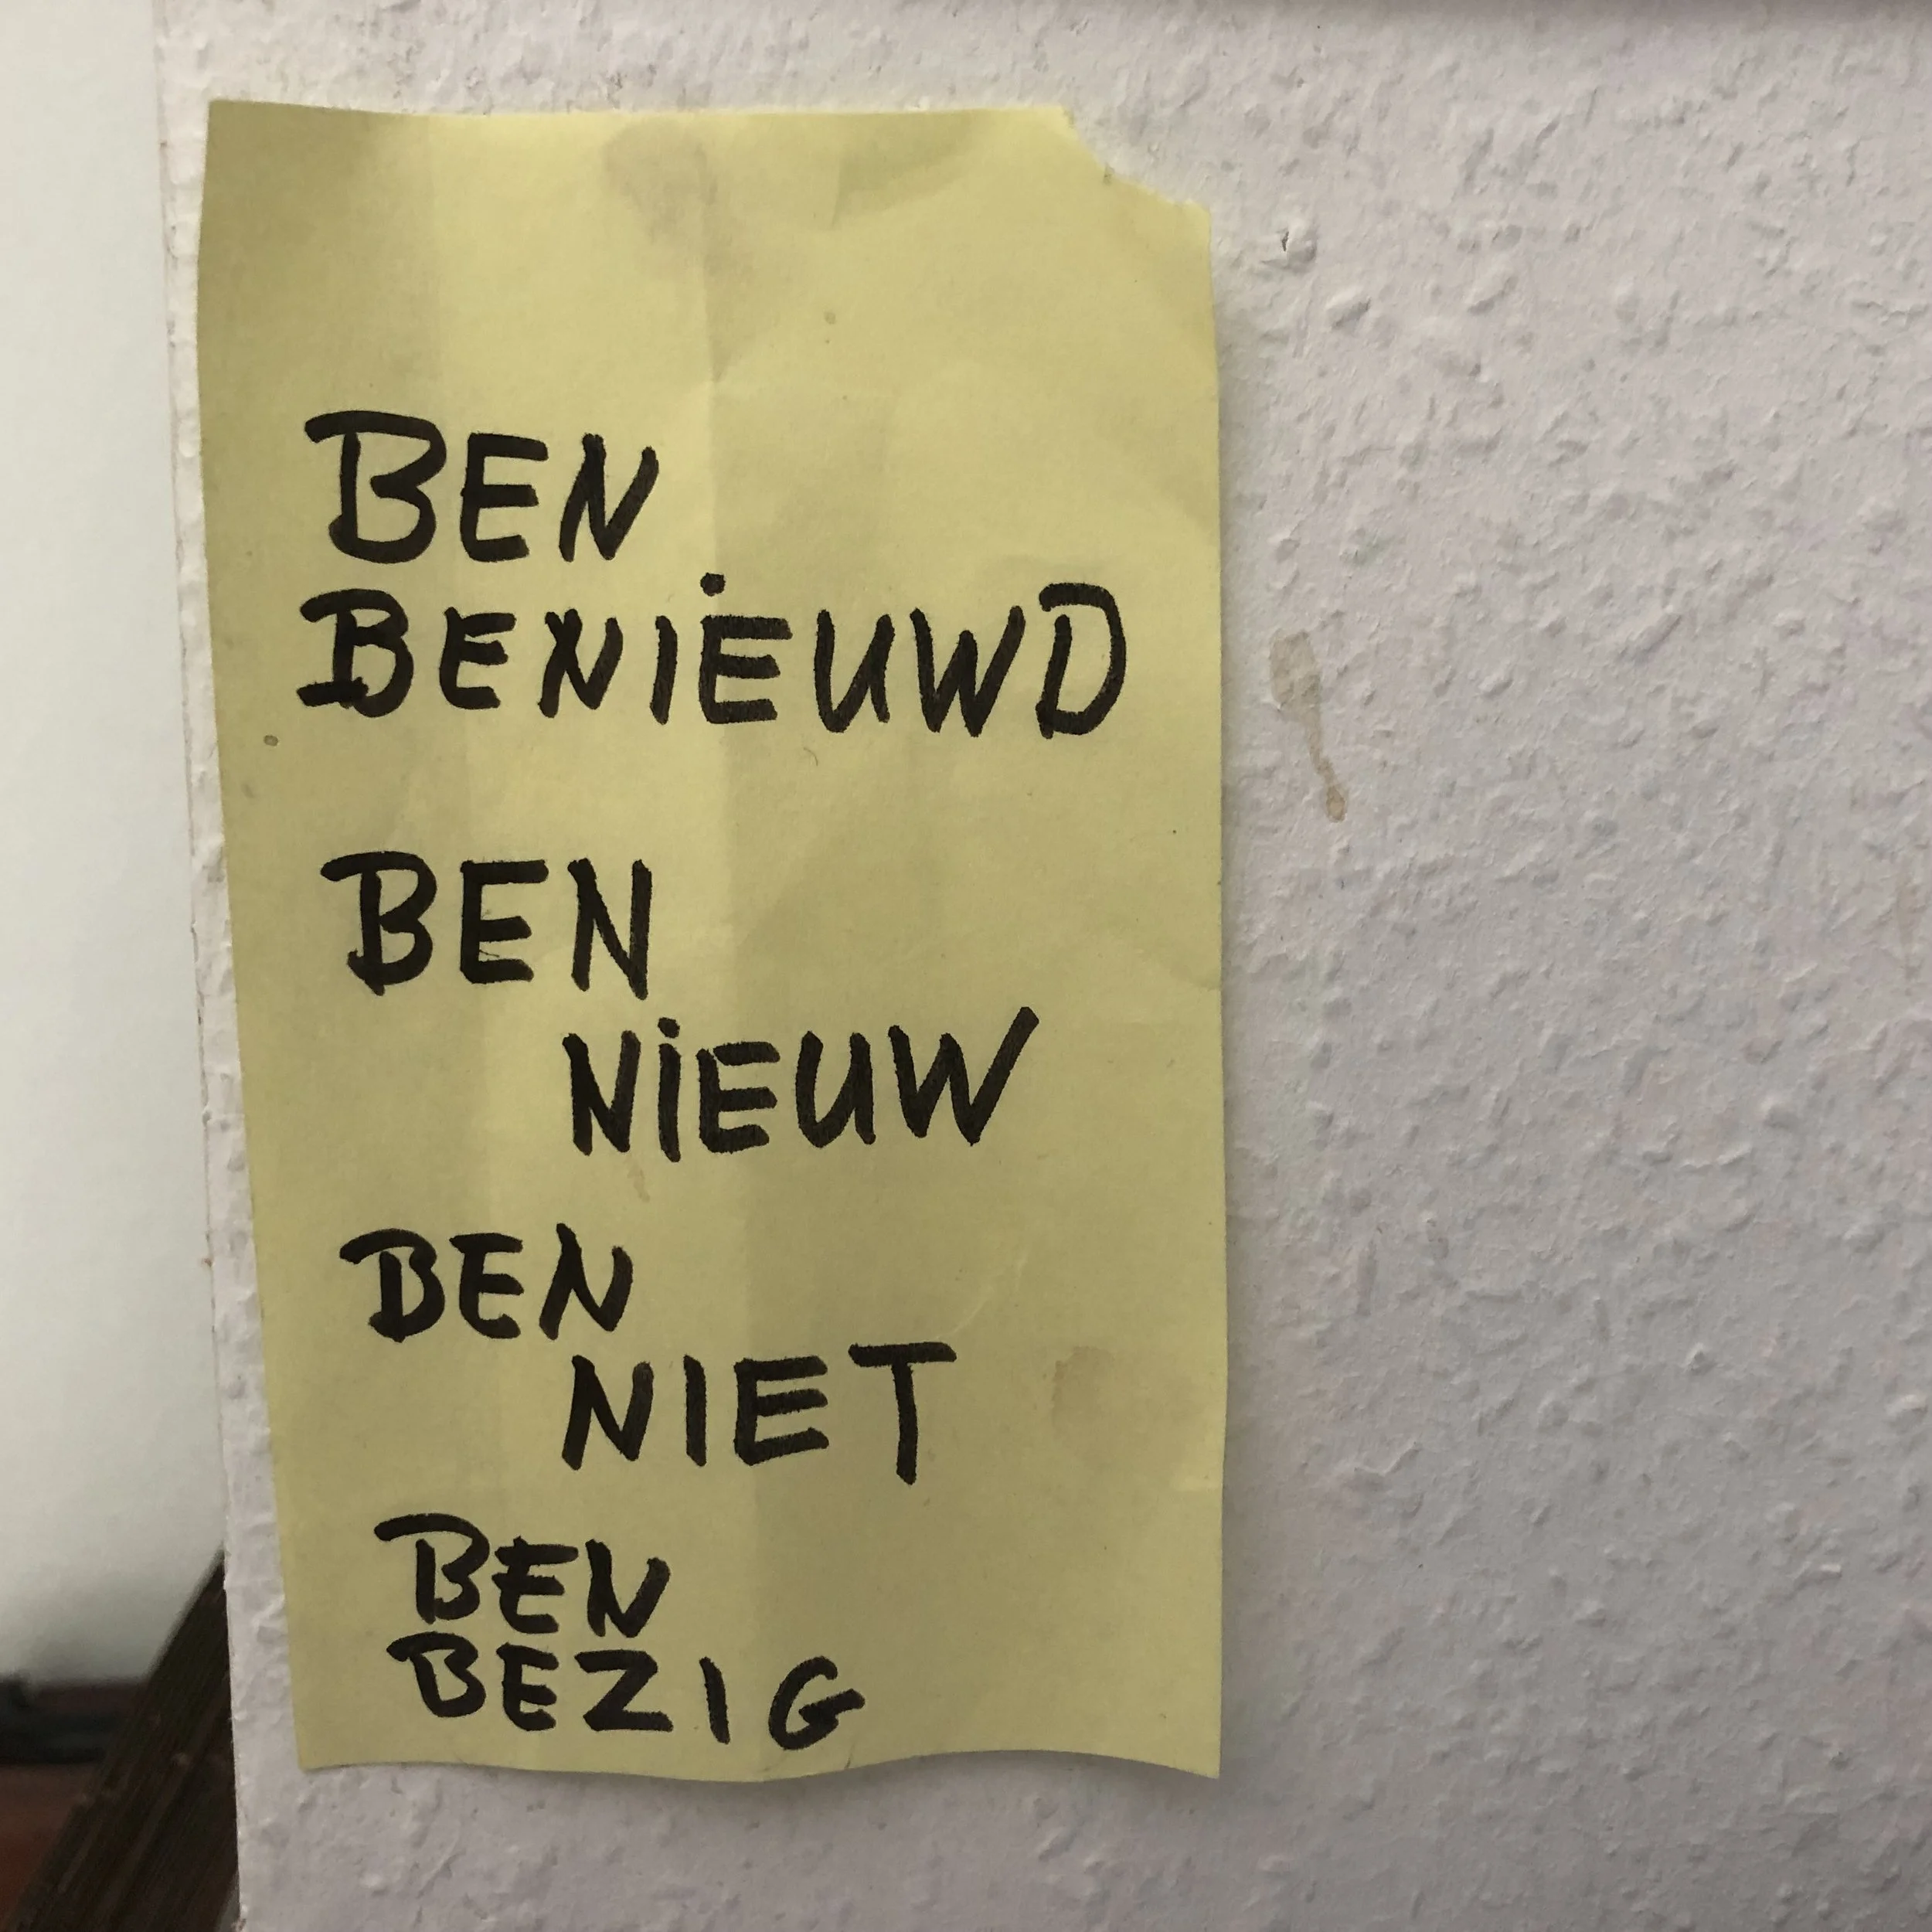 BEN
BENIEUWD
BEN
NIEUW
BEN
NIET
BEN
BEZIG